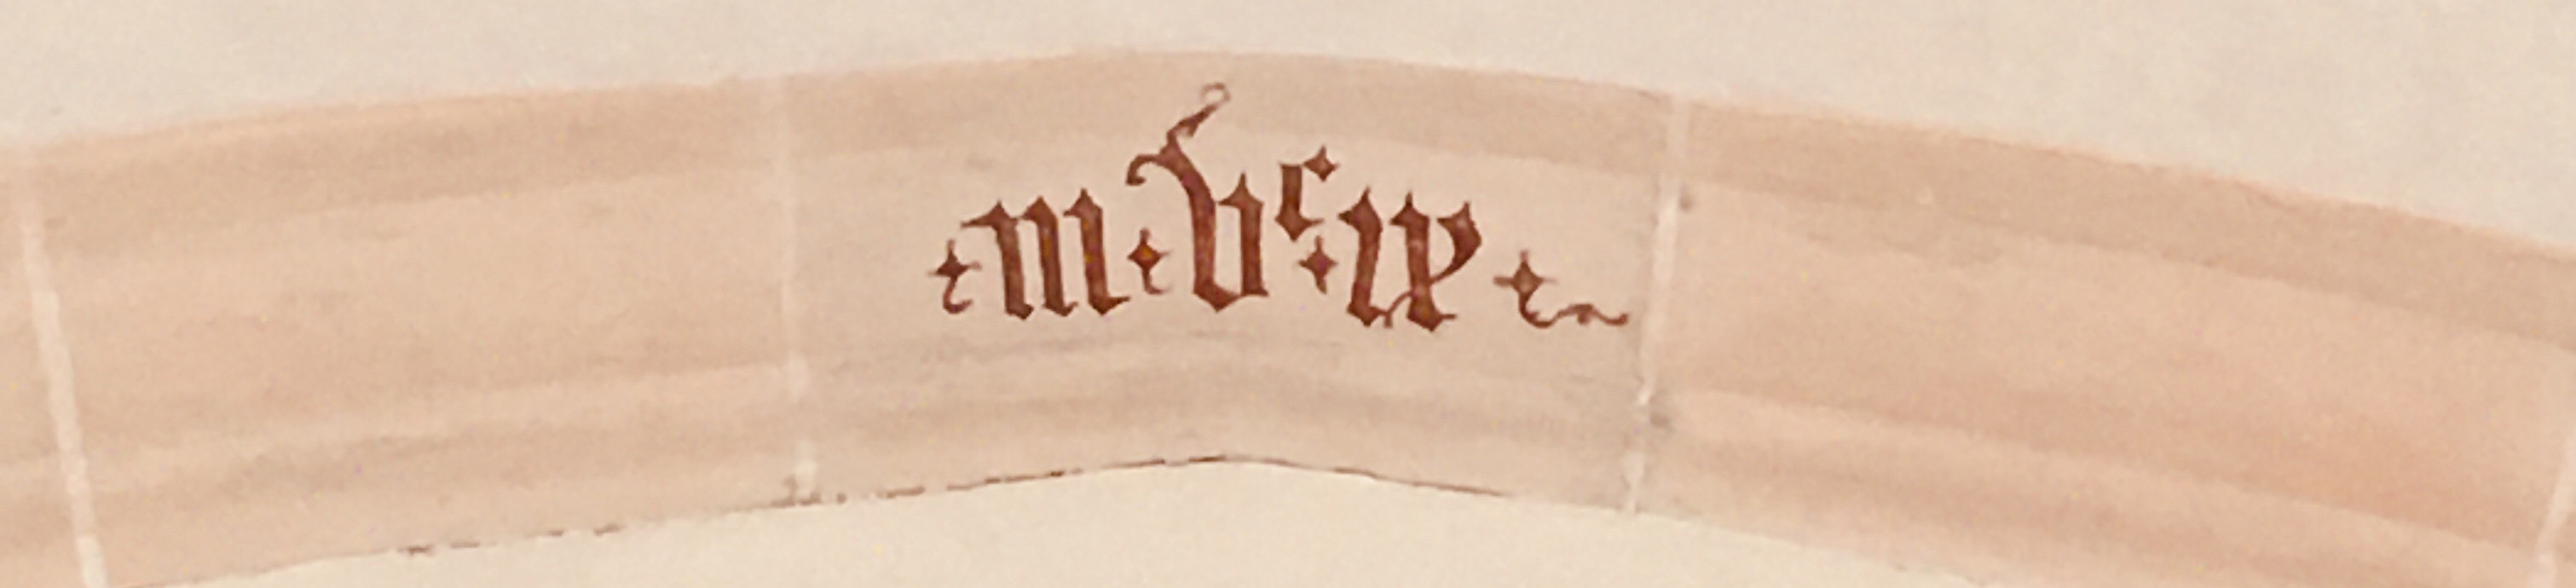 · m · vᶜ · ix ·